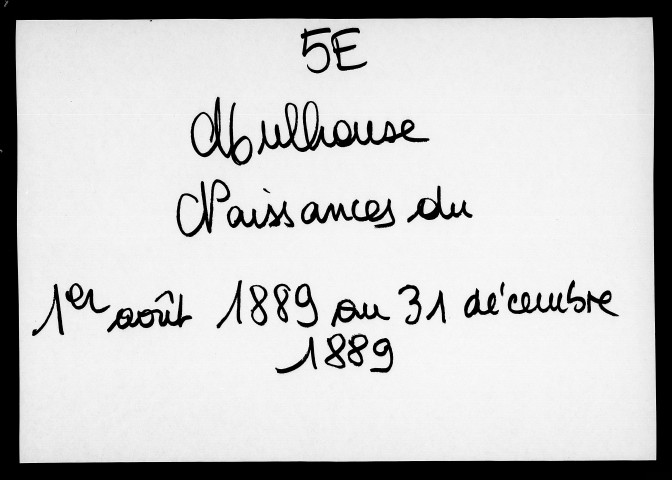 5E
Mulhouse
Naissances du
1er août 1889 au 31 décembre
1889